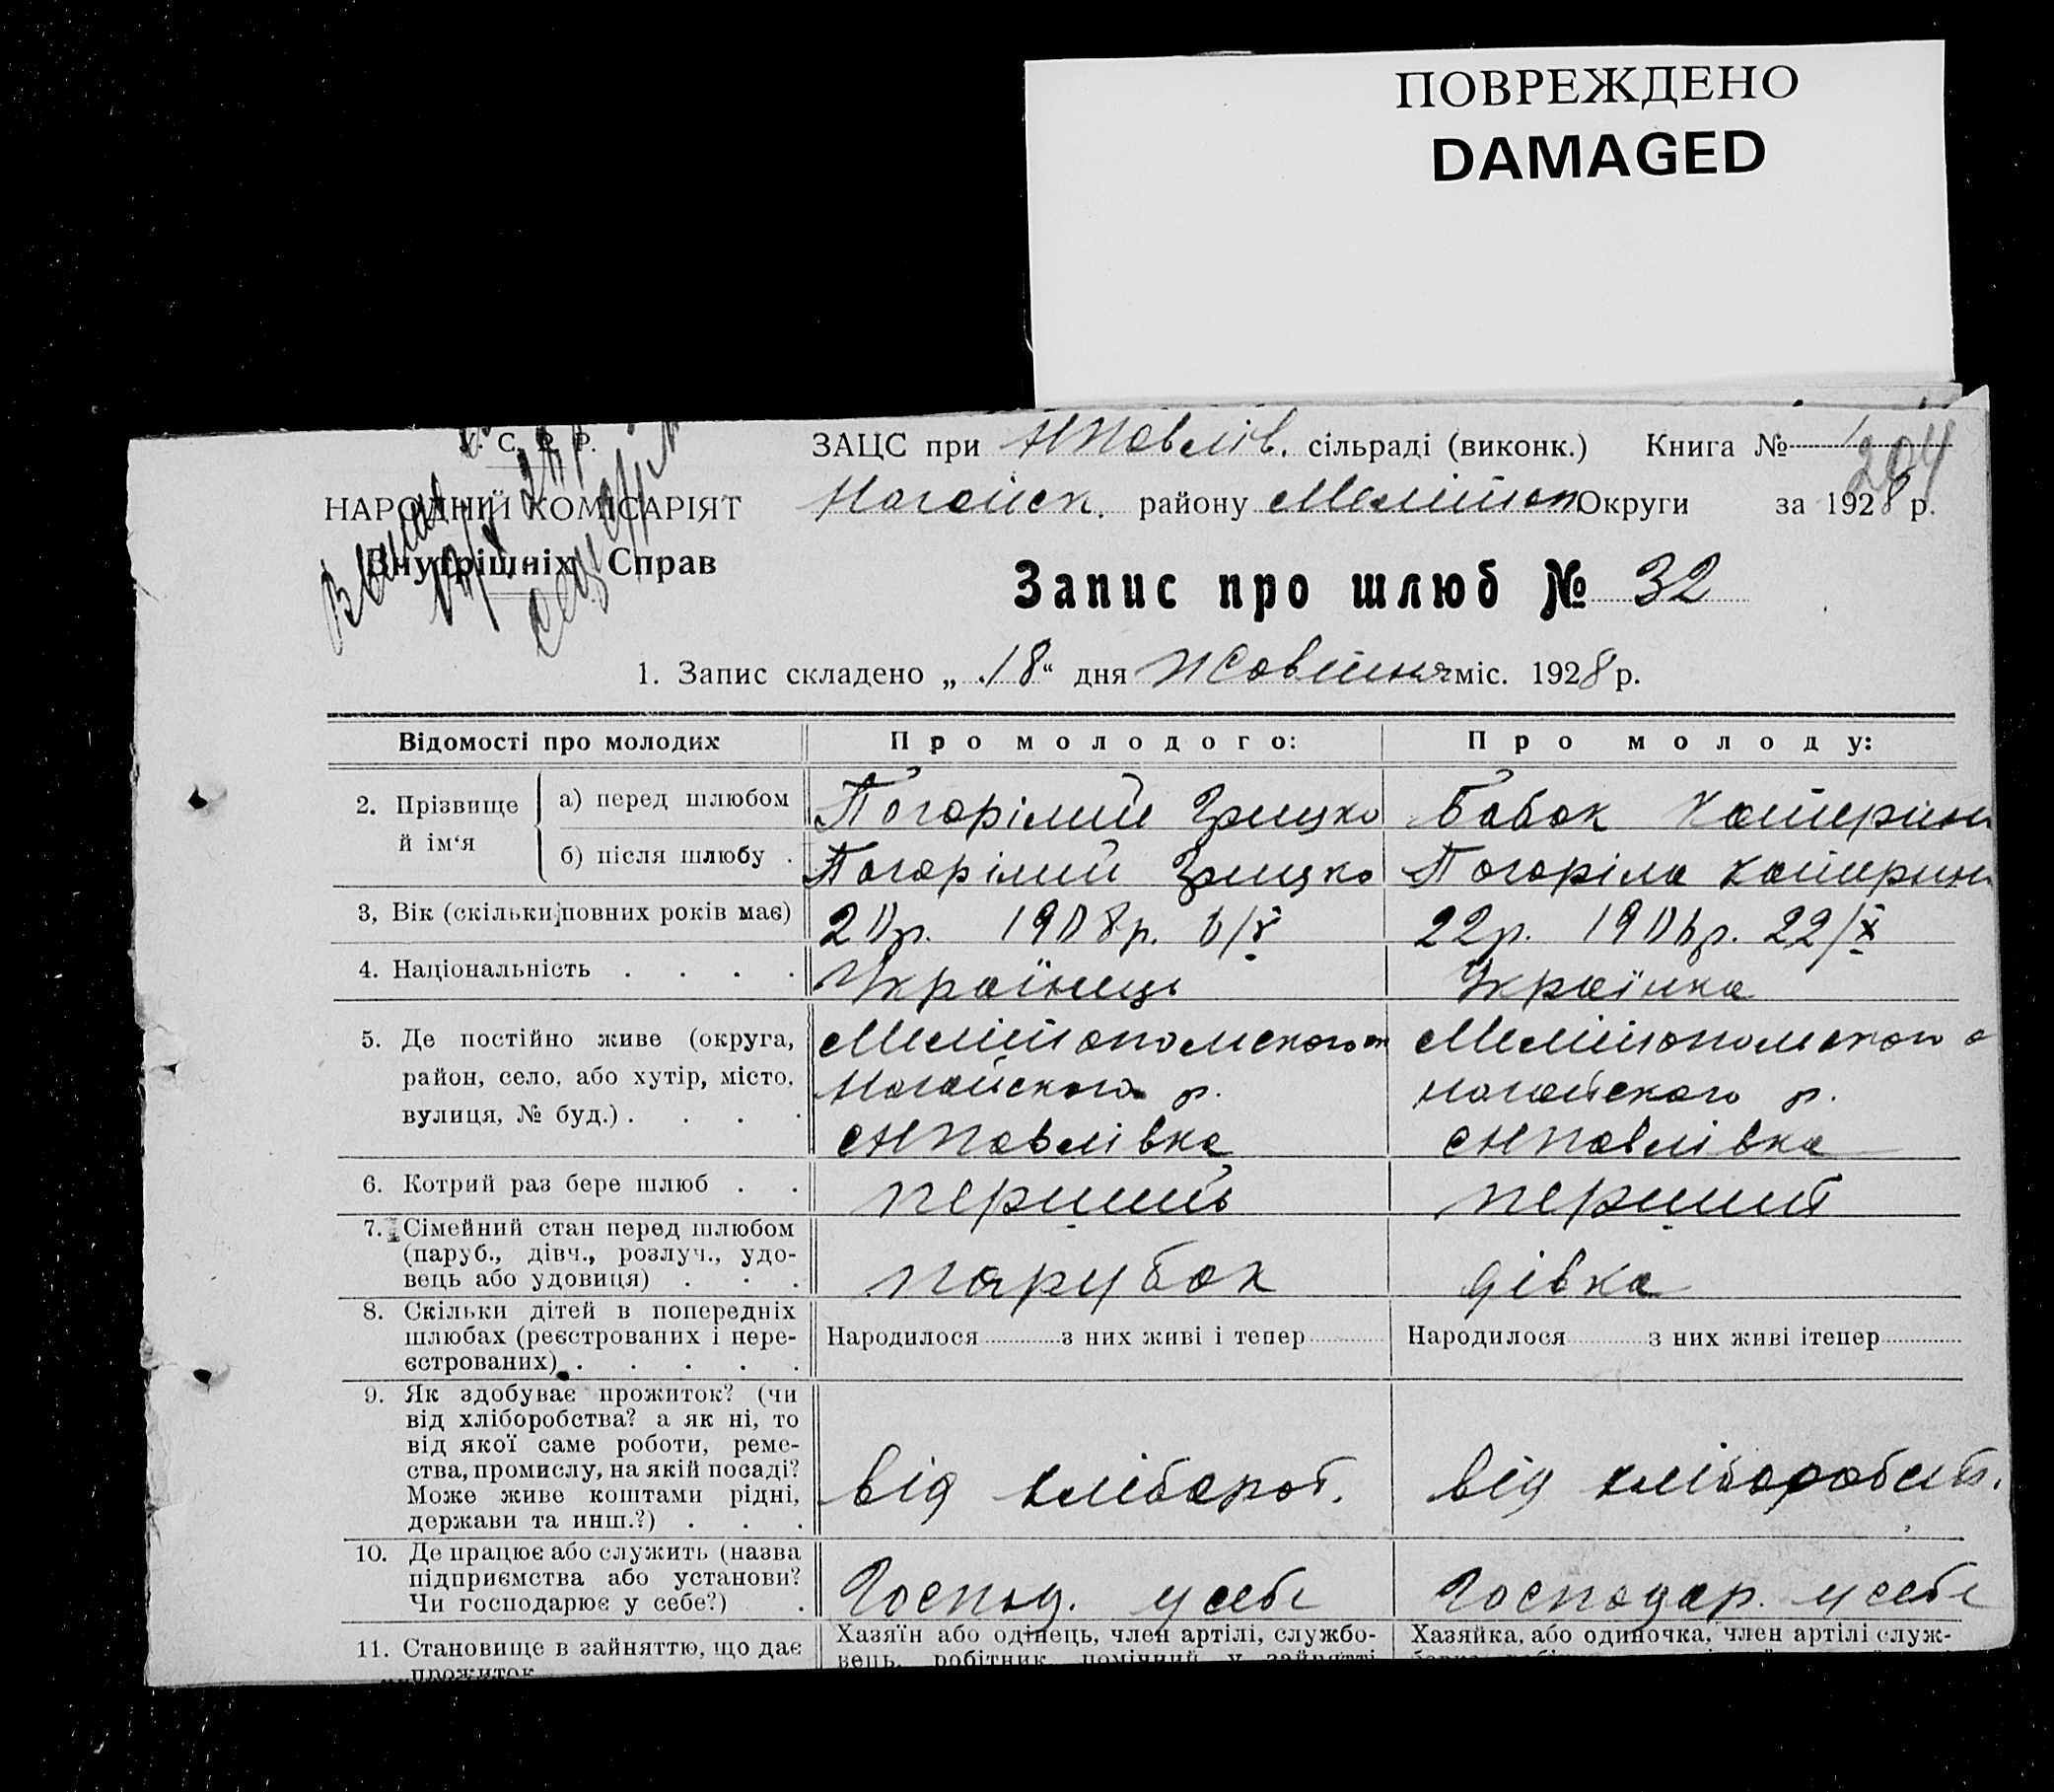 ПОВРЕЖДЕНО
DAMAGED
У. С. Р. Р.
НАРОДНІЙ КОМІСАРІЯТ
Внутрішніх Справ
ЗАЦС при НПавлів. сільраді (виконк.) Книга №
204
Ногайск. району Мелітоп Округи за 1928 р.
Запис про шлюб № 32
1. Запис складено „18“ дня Жовтня міс. 1928 р.
Відомості про молодих Про молодого: Про молоду:
2. Прізвище й ім‘я
а) перед шлюбом Погорілий Грицко Бабак Катерин
б) після шлюбу . Погорілий Грицко Погоріла Катерин
3, Вік (скільки повних років має) 20р. 1908р. 6/V 22р. 1906р. 22/X
4. Національність . . . . Українець Українка
5. Де постійно живе (округа, район, село, або хутір, місто, вулиця, № буд.) . . . .
Мелітопольского ок
Ногайского р.
с НПавлівка
Мелітопольского о
Ногайского р.
с НПавлівка
6. Котрий раз бере шлюб . . перший перший
7. Сімейний стан перед шлюбом
(паруб., дівч., розлуч., удо-
вець або удовиця) . . . парубок дівка
8. Скільки дітей в попередніх
шлюбах (реєстрованих і нере-
єстрованих) . . . . .
Народилося з них живі і тепер Народилося з них живі ітепер
9. Як здобуває прожиток? (чи
від хліборобства? а як ні, то
від якої саме роботи, реме-
ства, промислу, на якій посаді?
Може живе коштами рідні,
держави та инш.?) . . .
від хлібороб. від хліборобств.
10. Де працює або служить (назва
підприємства або установи?
Чи господарює у себе?) .
Господ. у себе Господар. у себе
11. Становище в зайняттю, що дає
прожиток
Хазяїн або одінець, член артілі, службо-
вець, робітник, помічний у зайнятті
Хазяйка, або одиночка, член артілі служ-